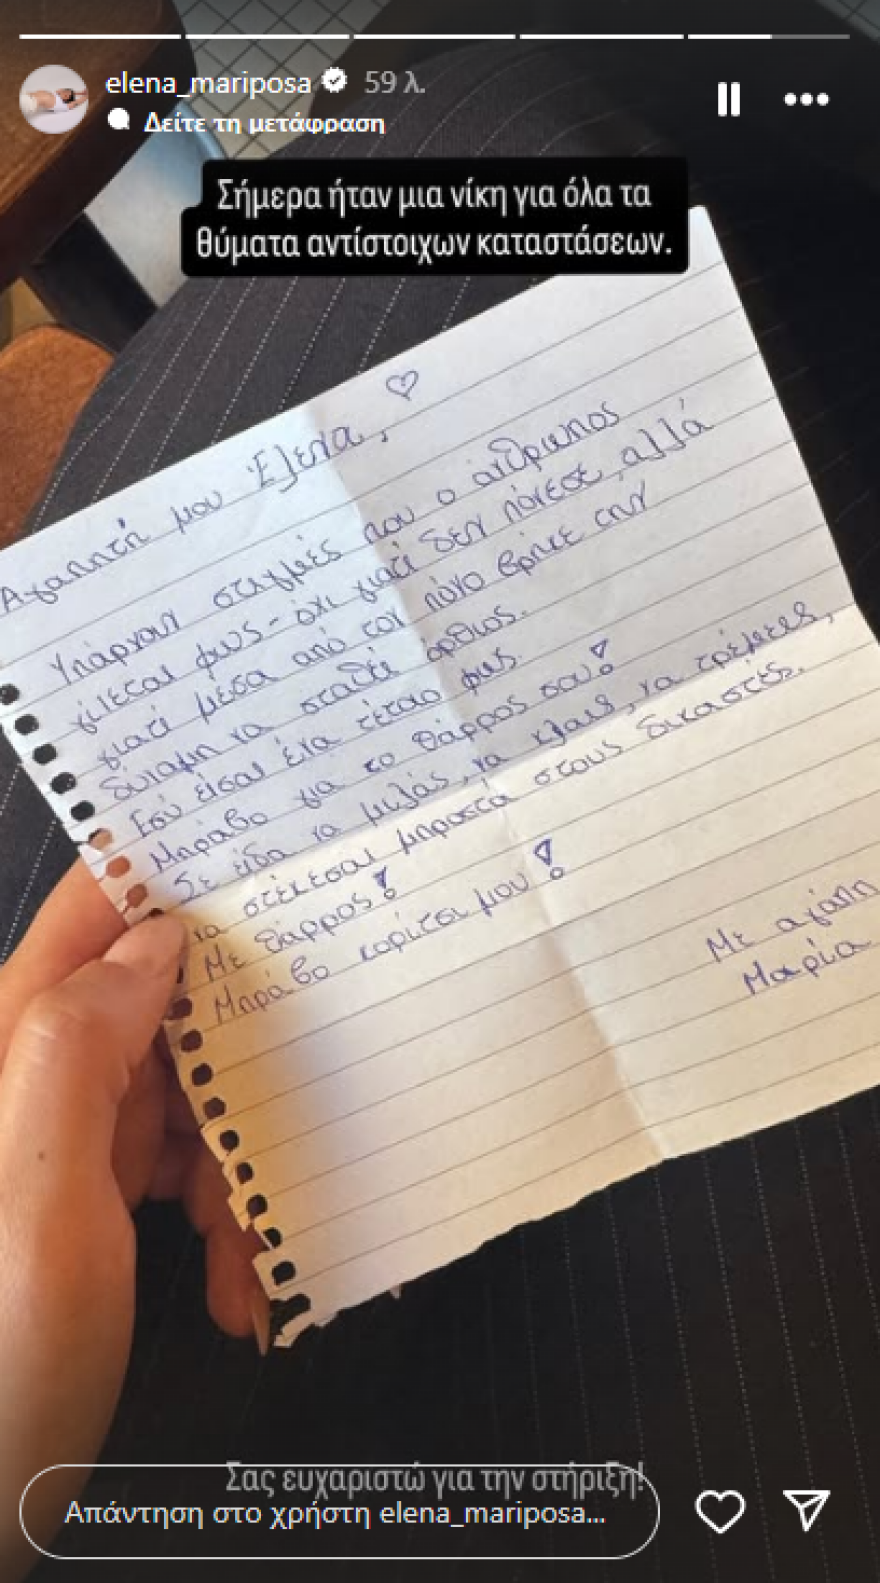 elena_mariposa 59 λ.
Δείτε τη μετάφραση
Σήμερα ήταν μια νίκη για όλα τα
θύματα αντίστοιχων καταστάσεων.
Αγαπητή μου Έλενα, ♡
Υπάρχουν στιγμές που ο άνθρωπος
γίνεται φως - όχι γιατί δεν πόνεσε, αλλά
γιατί μέσα από τον πόνο βρήκε την
δύναμη να σταθεί όρθιος.
Εσύ είσαι ένα τέτοιο φως.
Μπράβο για το θάρρος σου!
Σε είδα να μιλάς, να κλαις, να τρέμεις,
να στέκεσαι μπροστά στους δικαστές.
Με θάρρος!
Μπράβο κορίτσι μου!
Με αγάπη
Μαρία
Σας ευχαριστώ για την στήριξη!
Απάντηση στο χρήστη elena_mariposa...